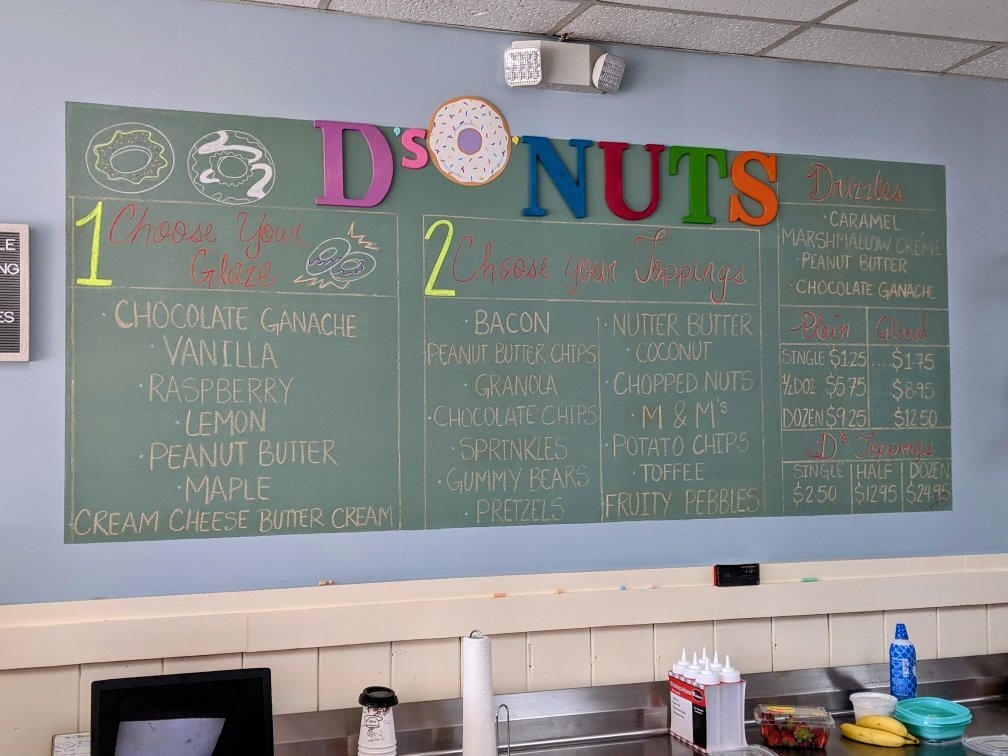 D's NUTS
1 Choose Your Glaze
· CHOCOLATE GANACHE
· VANILLA
· RASPBERRY
· LEMON
· PEANUT BUTTER
· MAPLE
CREAM CHEESE BUTTER CREAM
2 Choose your Toppings
· BACON
PEANUT BUTTER CHIPS
· GRANOLA
· CHOCOLATE CHIPS
· SPRINKLES
· GUMMY BEARS
· PRETZELS
· NUTTER BUTTER
· COCONUT
· CHOPPED NUTS
· M & M's
· POTATO CHIPS
· TOFFEE
FRUITY PEBBLES
Drizzles
· CARAMEL
MARSHMALLOW CRÉME
· PEANUT BUTTER
· CHOCOLATE GANACHE
Plain Glazed
SINGLE $1.25 ....$1.75
½ DOZ $5.75 $6.95
DOZEN $9.25 $12.50
D's Toppings
SINGLE HALF DOZEN
$2.50 $12.95 $24.95
LE
NG
ES